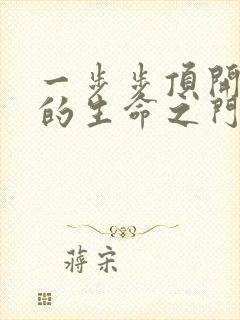 一步步頂開
的生命之門
蔣宋